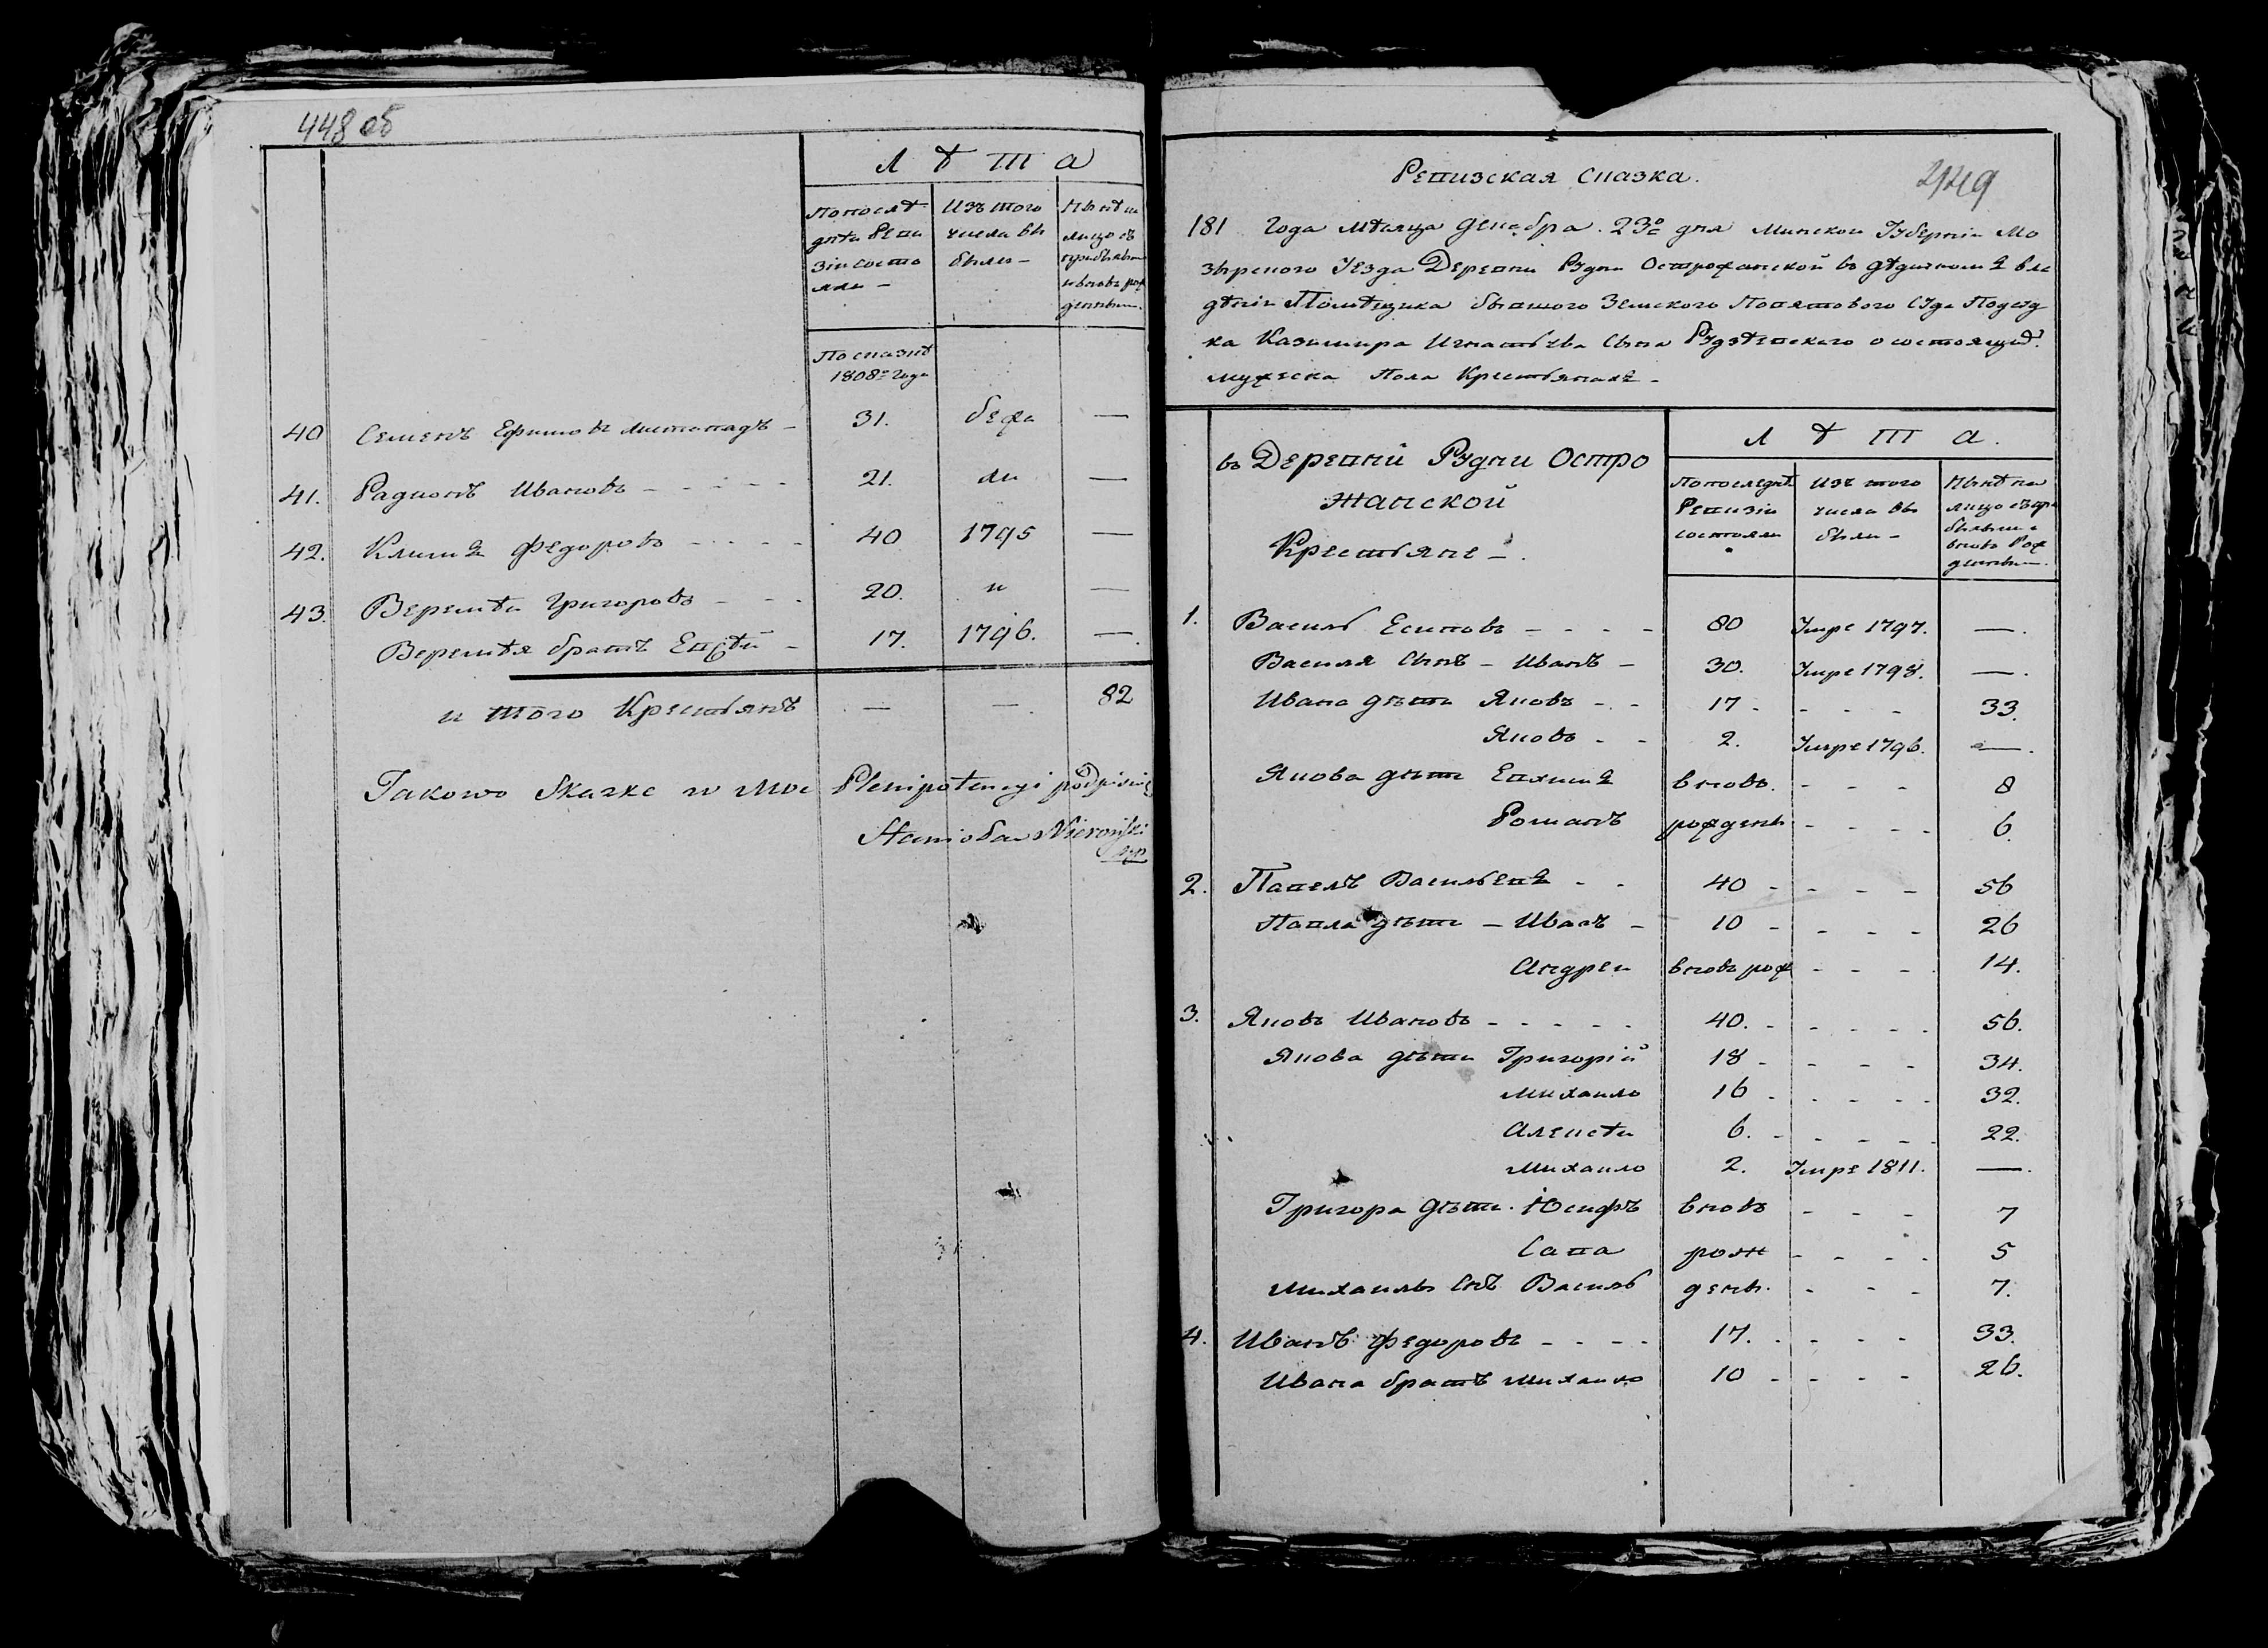 448 об
Лѣта
Попослѣ
дней Реви
зіи состо
яли –
Изъ того
числа вы
были –
Нынѣ на
лицо съ
прибылыми
и вновь рож
денными.
По сказкѣ
1808го Года
40 Семенъ Ефимовъ Листопадъ – 31. бежа —
41. Радионъ Ивановъ - - - - - 21. ли —
42. Климъ Федоровъ - - - - 40 1795 —
43. Веремѣй Григоровъ - - - 20. и —
Веремѣя братъ Евсѣй – 17. 1796. —
и того Крестьянъ — — 82
Takowo Skazke w moc Plenipotencyi podpisuię
Stanisław
449
Ревизская Сказка.
181 Года Мѣсяца Декабря. 23го дня Минской Губерніи Мо
зырского Уезда Деревни Рудни Острожанской въ дѣдичномъ вла
дѣніи Помѣщика бывшого Земского Поветового Суда Подсуд
ка Казимира Игнатьева Сына о состоящихъ
мужеска Пола Крестьянахъ –
въ Деревнѣ Рудни Остро
жанской
Крестьяне –
Лѣта.
Попоследнѣй
Ревизіи
состояли
Изъ того
числа вы
были –
Нынѣ на
лицо съ при
былыми и
вновь рож
денными.
1. Василь Есиповъ - - - - 80 Умре 1797. —.
Василя Сынъ – Иванъ – 30. Умре 1798. —.
Ивана дѣти Яковъ - - 17 - - - - 33.
Яковъ - - 2. Умре 1796. —.
Якова дѣти Евхимъ вновь. - - - 8
Романъ рожденъ - - - - 6.
2. Павелъ Васильевъ - - 40 - - - - 56
Павла дѣти – Иванъ – 10 - - - - 26
Андрей вновь рож - - - 14.
3. Яковъ Ивановъ - - - - - 40. - - - - - 56.
Якова дѣти Григорій 18 - - - - 34.
Михайло 16 - - - - - 32.
Алексѣй 6. - - - - - 22.
Михайло 2. Умре 1811. —.
Григора дѣти. Юсифъ вновь - - - 7
Сава рож - - - - 5
Михайлы Снъ Василь дены. - - - 7.
4. Иванъ Федоровъ - - - - 17. - - - - 33.
Ивана братъ Михайло 10 - - - - 26.